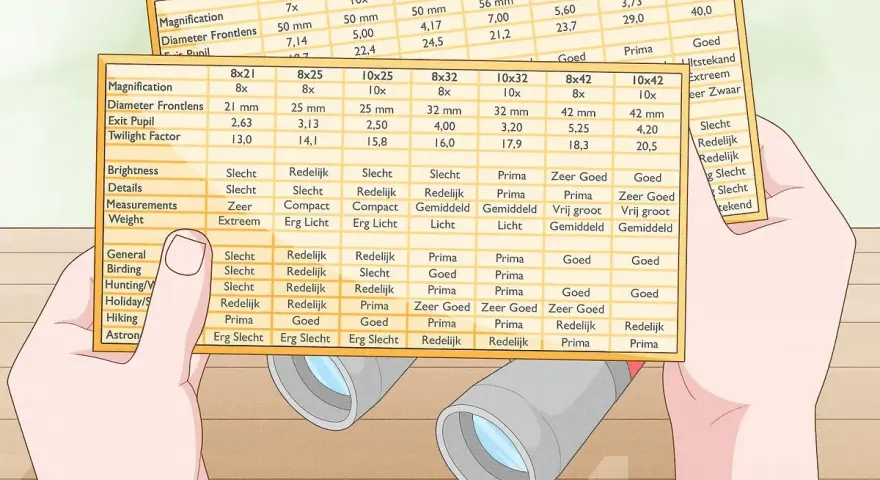 Magnification 7x 10x
Diameter Frontlens 50 mm 50 mm 50 mm 56 mm
Exit Pupil 7,14 5,00 4,17 7,00 5,60 3,73
22,4 24,5 21,2 23,7 29,0 40,0
Goed Prima Goed
Extreem
Zwaar
Slecht
Redelijk
Redelijk
Slecht
Slecht
8x21 8x25 10x25 8x32 10x32 8x42 10x42
Magnification 8x 8x 10x 8x 10x 8x 10x
Diameter Frontlens 21 mm 25 mm 25 mm 32 mm 32 mm 42 mm 42 mm
Exit Pupil 2,63 3,13 2,50 4,00 3,20 5,25 4,20
Twilight Factor 13,0 14,1 15,8 16,0 17,9 18,3 20,5
Brightness Slecht Redelijk Slecht Slecht Prima Zeer Goed Goed
Details Slecht Slecht Redelijk Redelijk Prima Prima Zeer Goed
Measurements Zeer Compact Compact Gemiddeld Gemiddeld Vrij groot Vrij groot
Weight Extreem Erg Licht Erg Licht Licht Licht Gemiddeld Gemiddeld
General Slecht Redelijk Redelijk Prima Prima Goed Goed
Birding Slecht Redelijk Slecht Goed Prima
Hunting/ Slecht Redelijk Redelijk Prima Prima Goed Goed
Holiday/ Redelijk Redelijk Prima Zeer Goed Zeer Goed Zeer Goed
Hiking Prima Goed Goed Prima Prima Redelijk Redelijk
Astron Erg Slecht Erg Slecht Erg Slecht Redelijk Redelijk Prima Prima